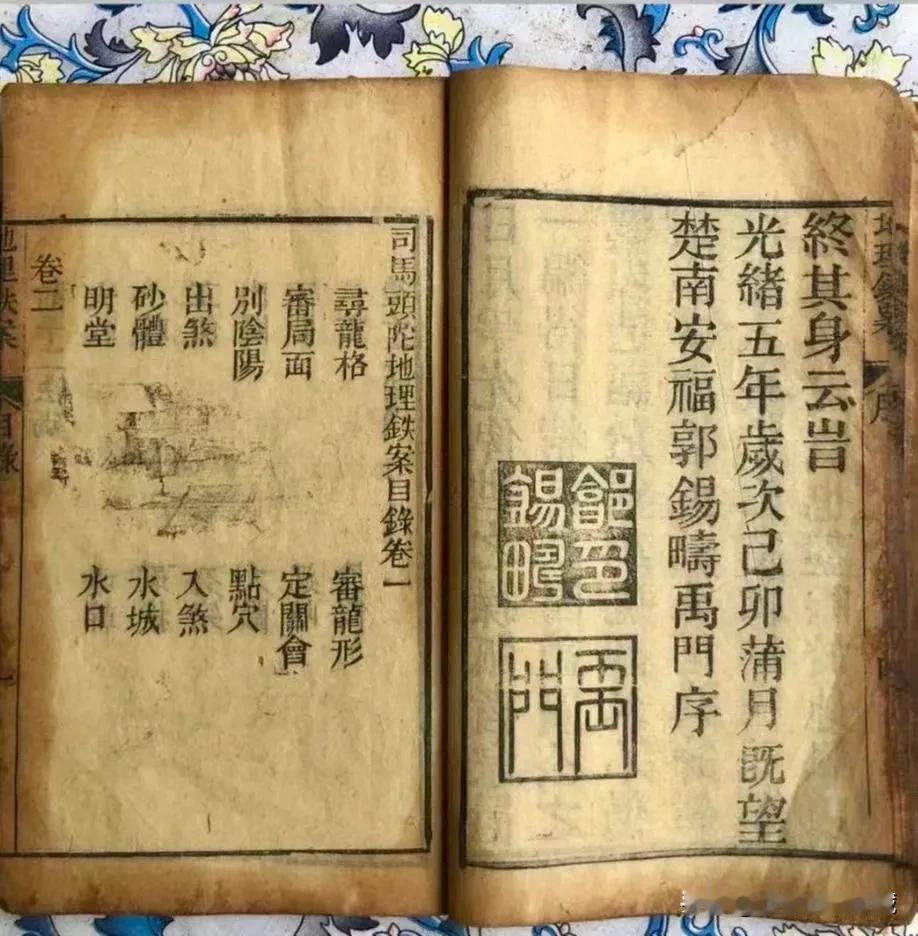 終其身云旹
光緒五年歲次己卯蒲月既望
楚南安福郭錫疇禹門序
禹門
司馬頭陀地理鉄案目錄卷一
尋龍格 審龍形
審局面 定關會
別陰陽 點穴
出煞 入煞
砂體 水城
明堂 水口
卷二